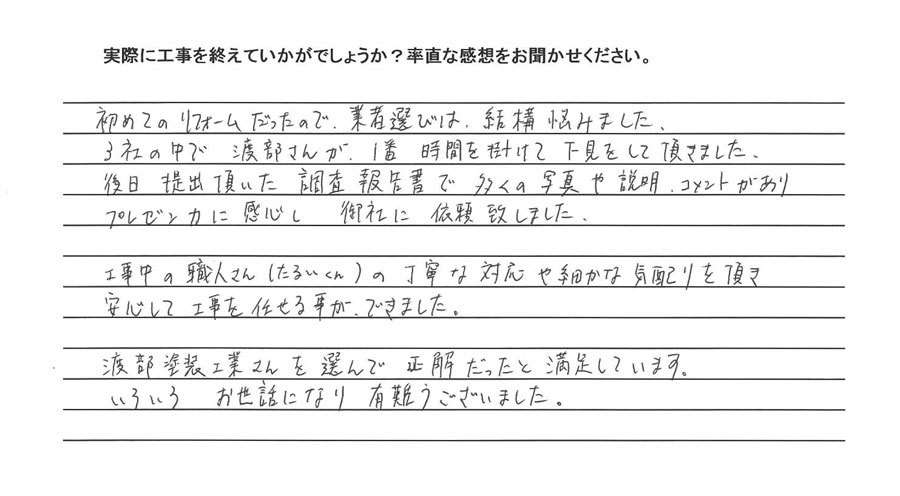 実際に工事を終えていかがでしょうか？率直な感想をお聞かせください。
初めてのリフォームだったので、業者選びは、結構悩みました、
3社の中で 渡部さんが、1番 時間を掛けて下見をして頂きました、
後日 提出頂いた 調査報告書で 多くの写真や説明、コメントがあり
プレゼン力に感心し 御社に依頼致しました、
工事中の職人さん(たるいくん)の丁寧な対応や細かな気配りを頂き
安心して工事を任せる事が、できました。
渡部塗装工業さんを選んで正解だったと満足しています。
いろいろ お世話になり 有難うございました。